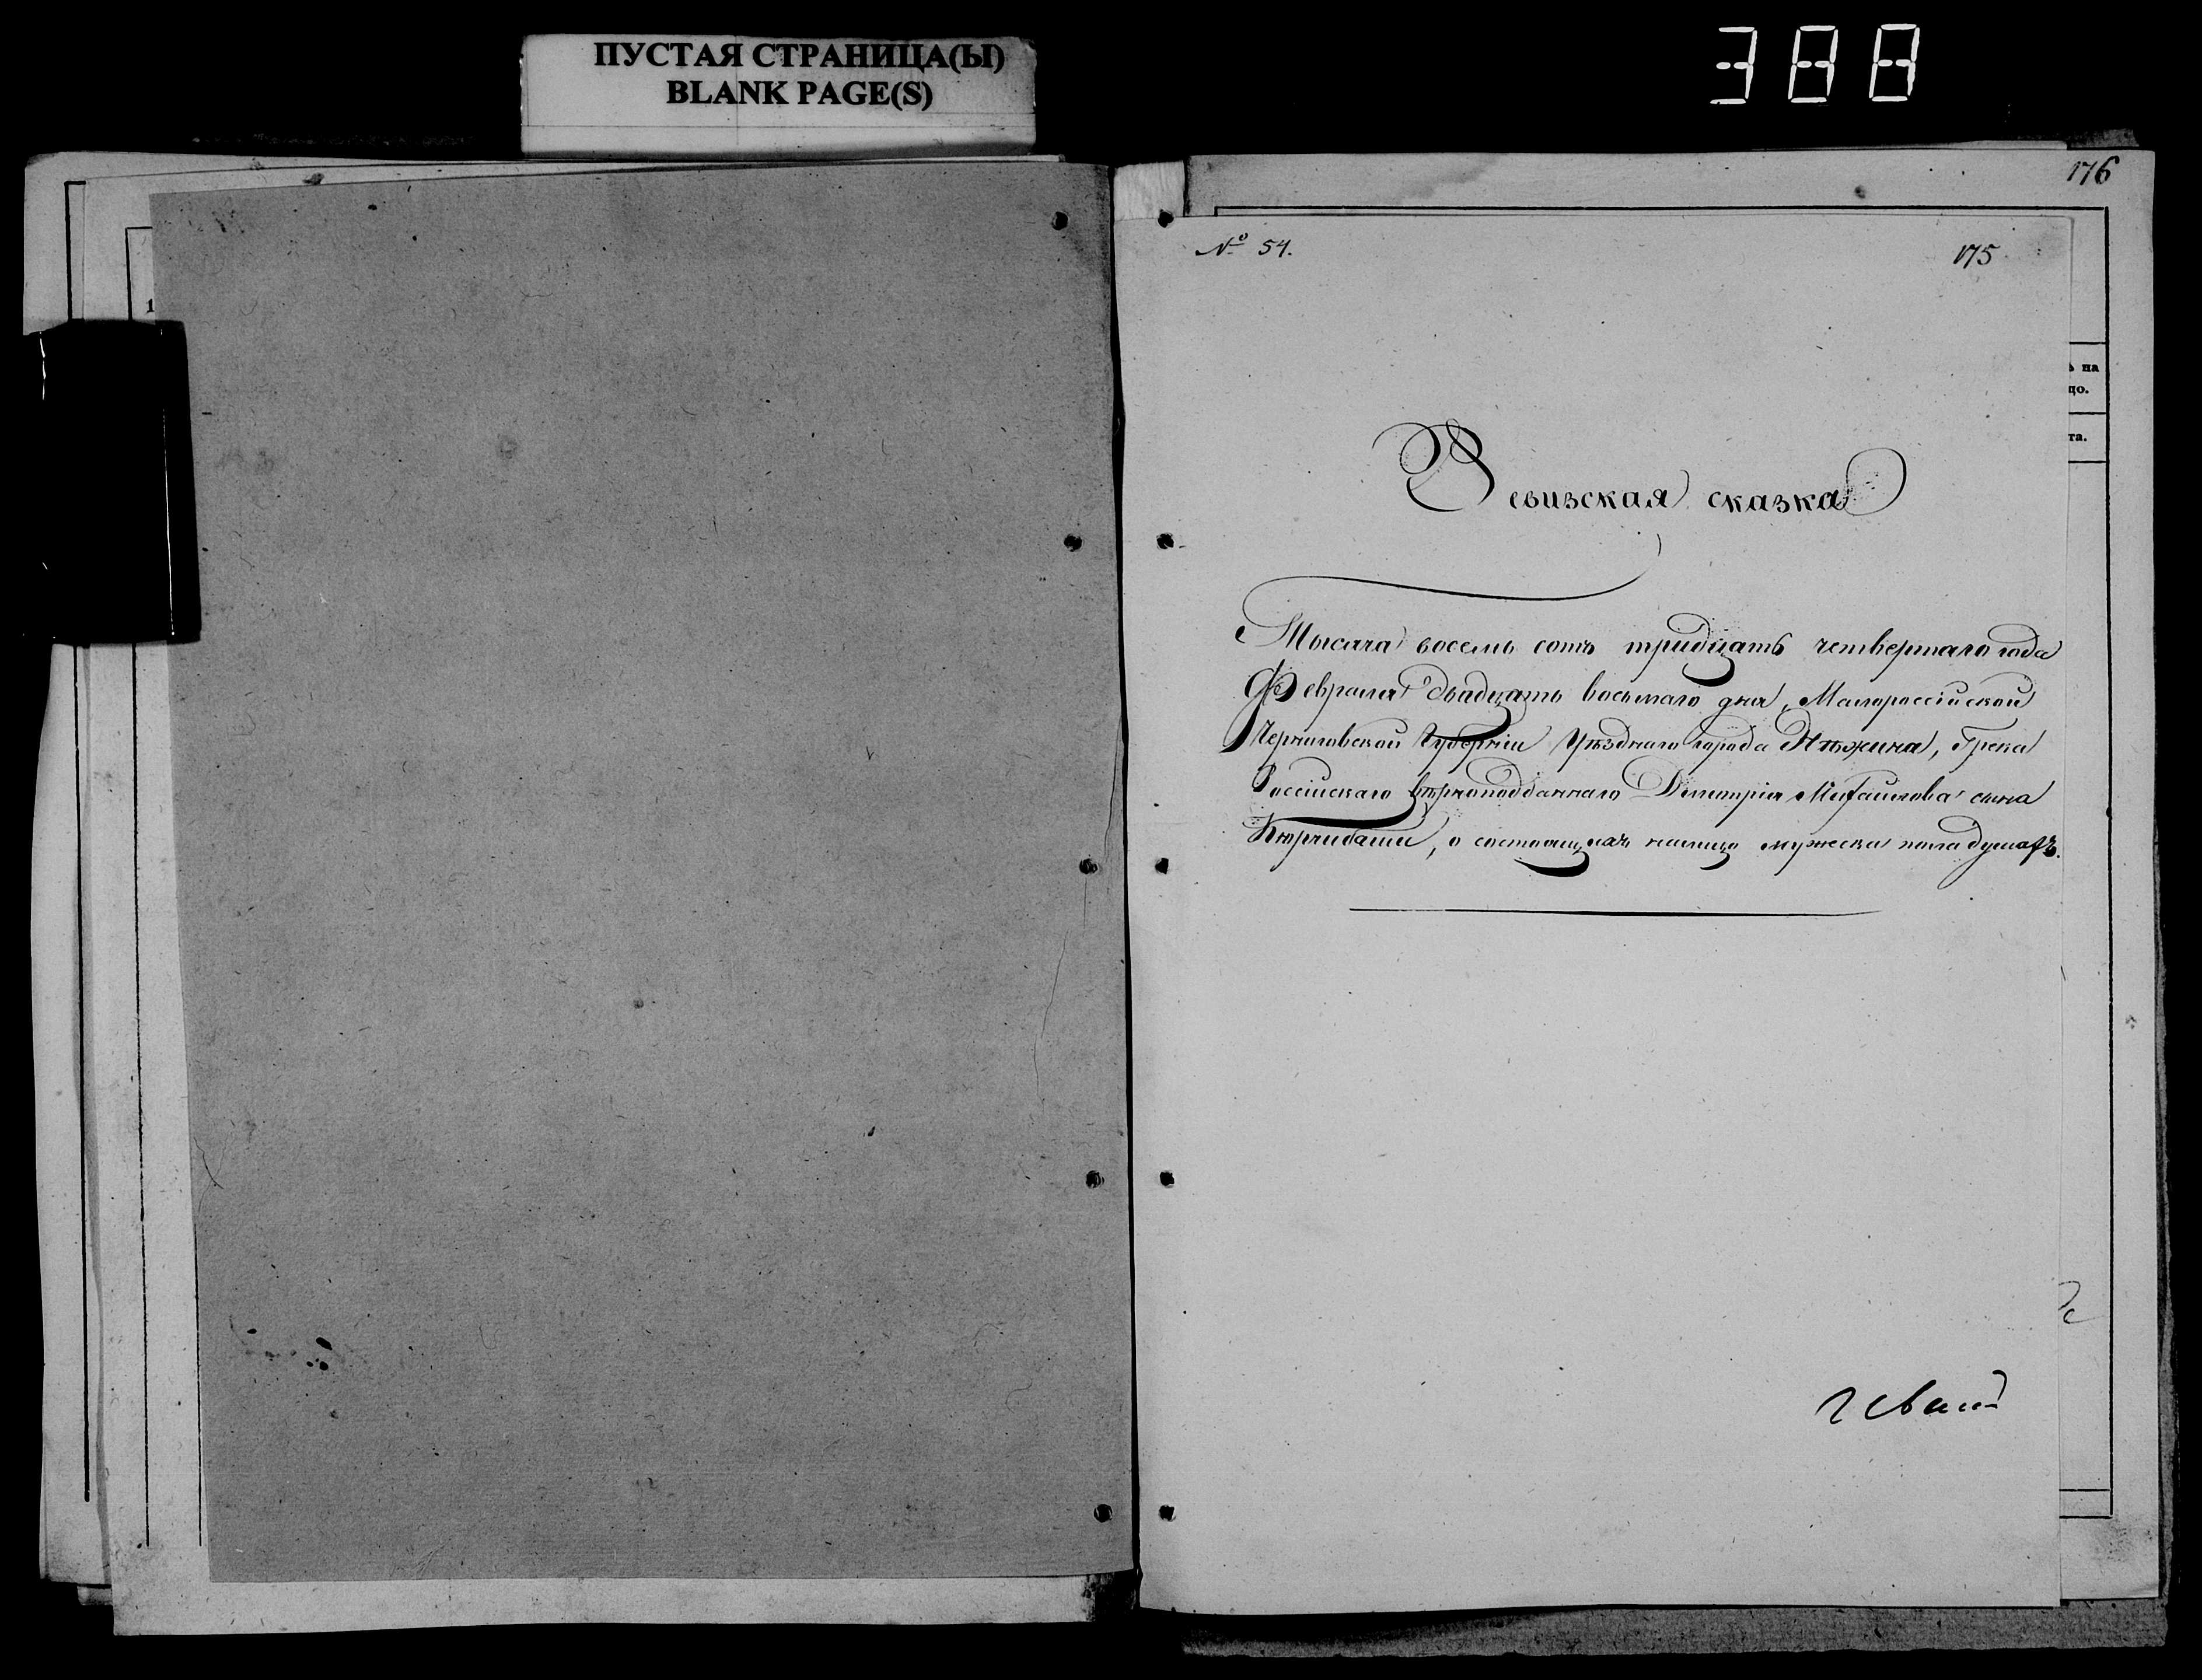 ПУСТАЯ СТРАНИЦА(Ы)
BLANK PAGE(S)
388
176
№ 54.
175
1
ъ на
цо.
та.
Ревизская сказка
Тысяча восемь сотъ тридцать четвертаго года
Февраля двадцать восьмаго дня, Малороссійской
Черниговской Губерніи Уѣзднаго города Нѣжина, Грека
Россійскаго вѣрноподданнаго Димитрія Михайлова сына
Кюрчибаши, о состоящихъ налицо мужеска пола душахъ.